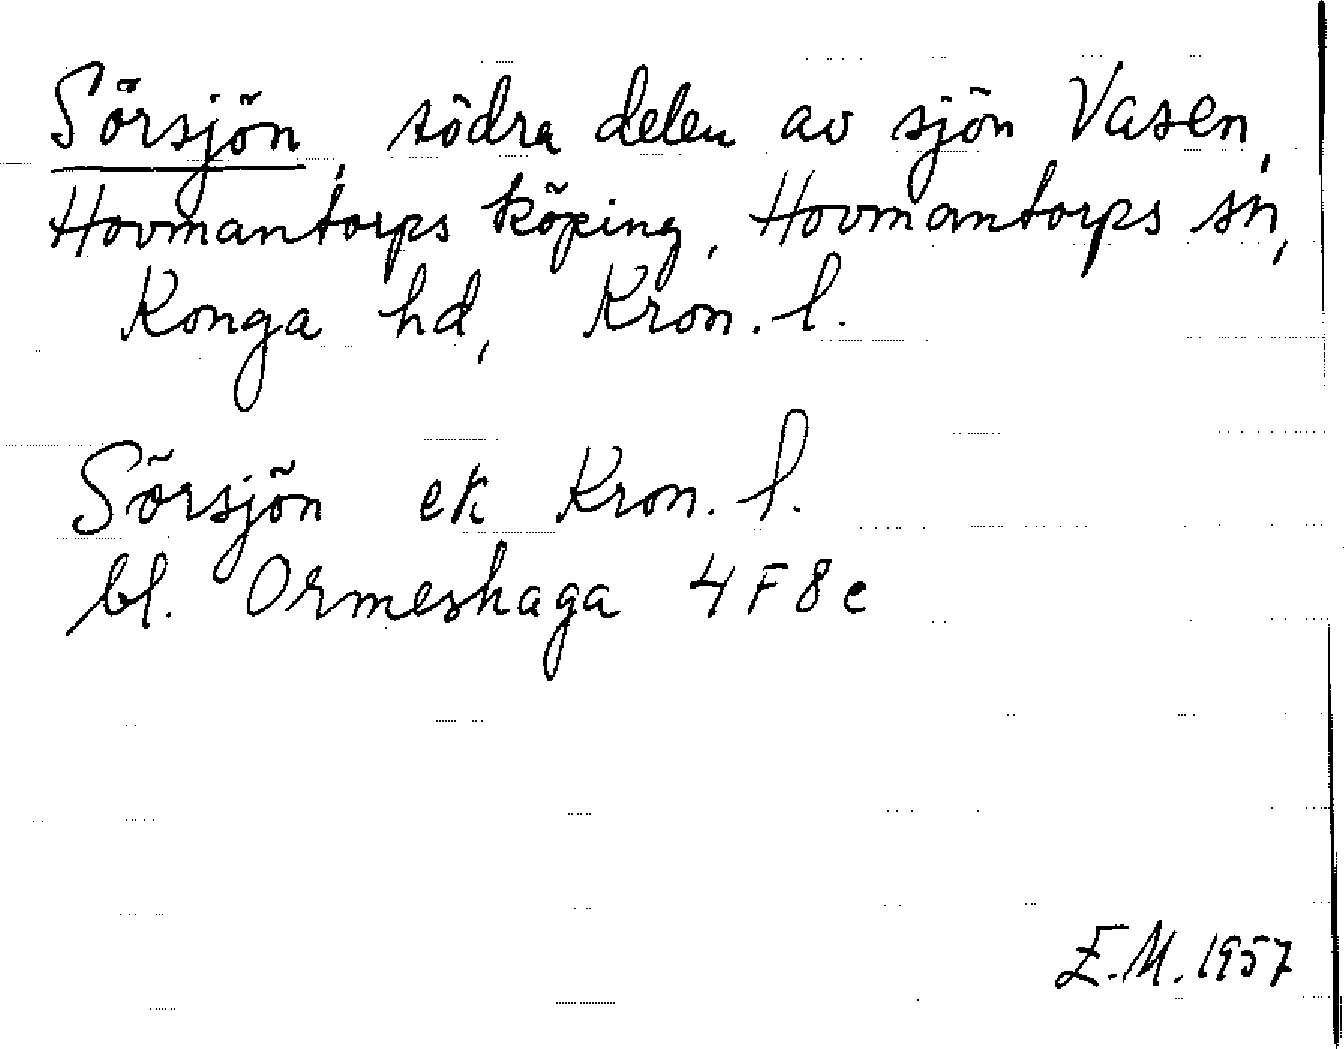 Sörsjön, södra delen av sjön Vasen,
Hovmantorps köping, Hovmantorps sn,
Konga hd, Kron. l.
Sörsjön ek Kron. l.
bl. Ormeshaga 4F8e
E.M. 1957